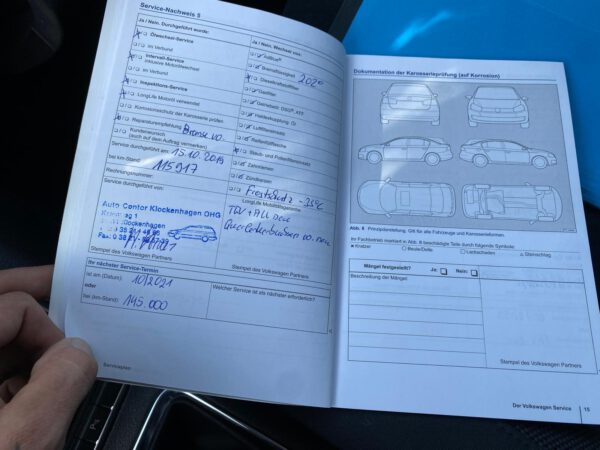 Service-Nachweis 5
Ja / Nein. Durchgeführt wurde:
Ölwechsel-Service
im Verbund
Intervall-Service
inklusive Motorölwechsel
im Verbund
Inspektions-Service
LongLife Motoröl verwendet
Korrosionsschutz der Karosserie prüfen.
Reparaturempfehlung: Bremse vo.
Kundenwunsch
(auch auf dem Auftrag vermerken)
Service durchgeführt am: 15.10.2019
bei km-Stand: 115917
Rechnungsnummer:
Service durchgeführt von:
Auto Center Klockenhagen OHG
Klockenhagen
Stempel des Volkswagen Partners
Ja / Nein. Wechsel von:
AdBlue®
Bremsflüssigkeit 2020
Dieselkraftstofffilter
Gasfilter
Getriebeöl: DSG®, ATF
Haldexkupplung: Öl
Luftfiltereinsatz
Reifenfüllflasche
Staub- und Pollenfiltereinsatz
Zahnriemen
Zündkerzen
Frostschutz -35°C
LongLife Mobilitätsgarantie
TÜV + AU neu
Querlenkerbuchsen vo. neu
Stempel des Volkswagen Partners
Ihr nächster Service-Termin
ist am (Datum): 10/2021
oder
bei (km-Stand): 145.000
Welcher Service ist als nächster erforderlich?
Serviceplan
Dokumentation der Karosserieprüfung (auf Korrosion)
Abb. 6 Prinzipdarstellung: Gilt für alle Fahrzeuge und Karosserieformen.
Ihr Fachbetrieb markiert in Abb. 6 beschädigte Teile durch folgende Symbole:
Kratzer
Beule/Delle
Lackschaden
Steinschlag
Mängel festgestellt?
Ja:
Nein:
Beschreibung der Mängel:
Stempel des Volkswagen Partners
Der Volkswagen Service
15